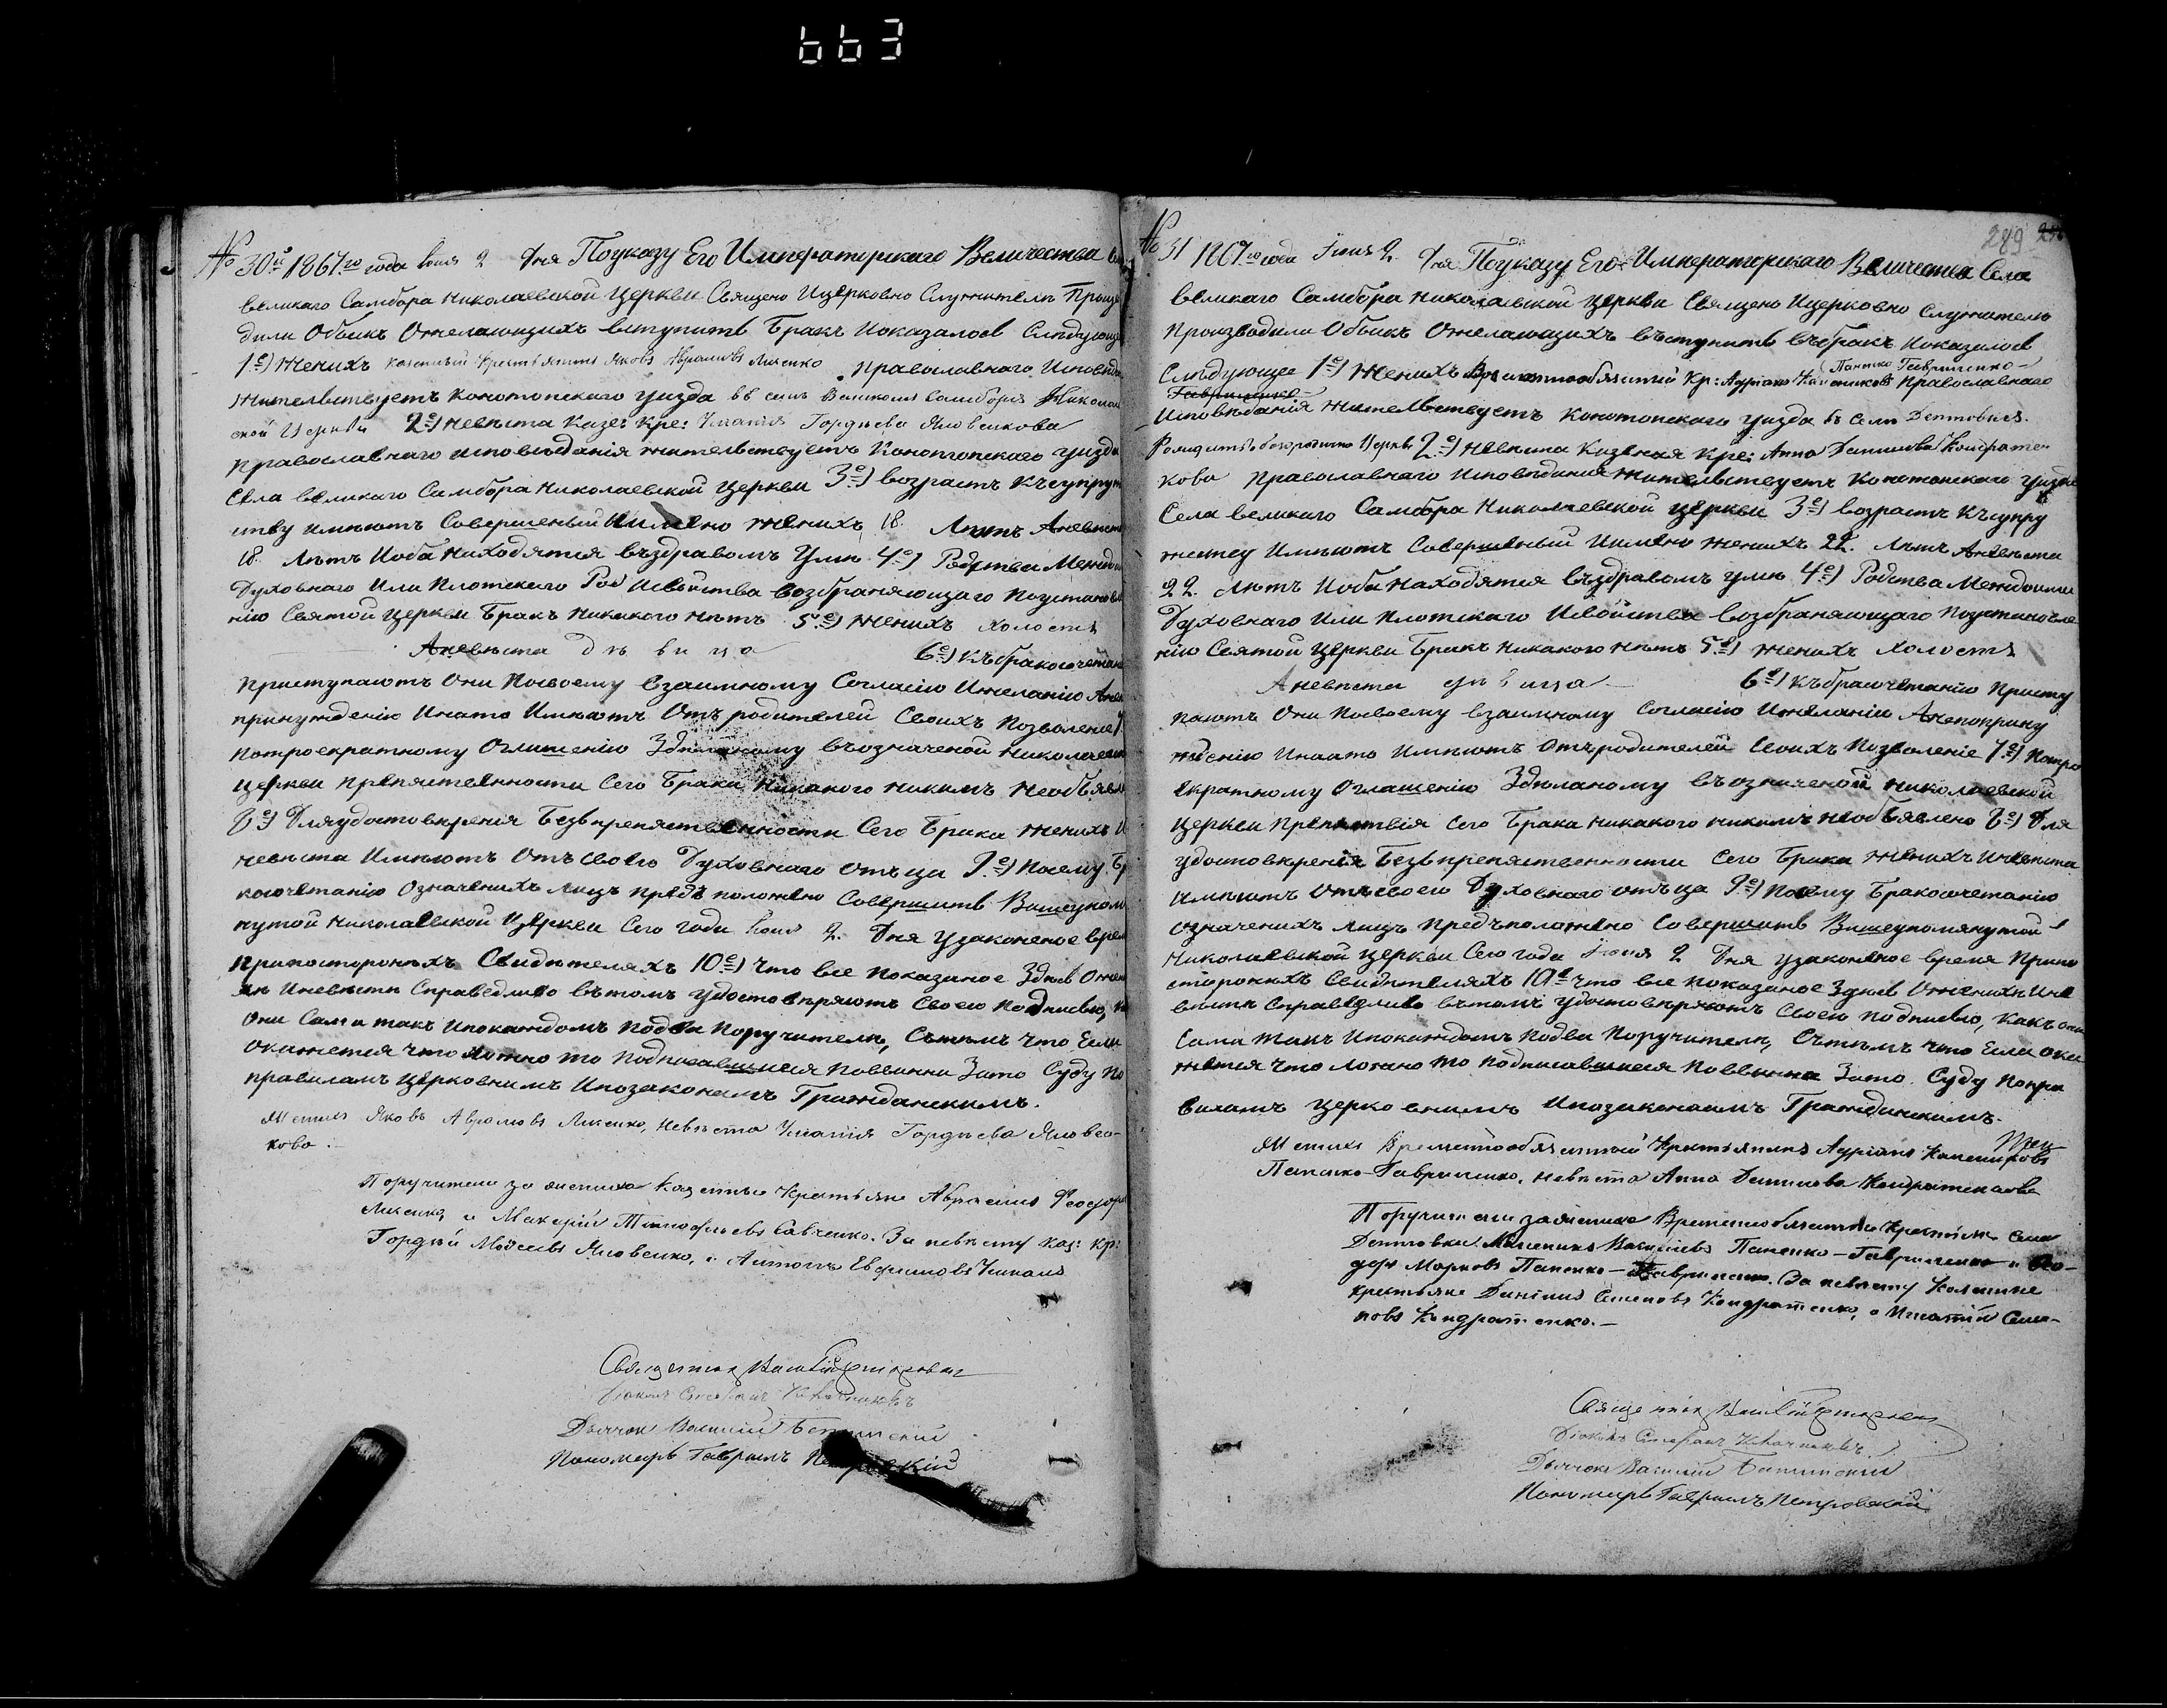 663
№ 30й 1867го года Іюня 2 Дня Поуказу Его Императорскаго Величества
великаго Самбора Николаевской Церкви Священо Ицерковно Служители
дили Обыскъ Ожелающихъ вступить Бракъ Иоказалось Следующе
1е) Женихъ казенный Крестьянинъ Яковъ Аврамовъ Лисенко Православнаго
Жительствуетъ Конотопскаго уезда въ селе Великомъ Самборе Никола
ской Церкви 2е) Невеста Казе: Кре: Гордеева Яловенкова
Православнаго исповеданія жительствуетъ Конотопскаго уезда
Села великаго Самбора Николаевской Церкви 3е) возрастъ Ксупру
ству имеютъ Совершеный Имено женихъ 18. Летъ Аневеста
18. Летъ Иоба Находятся въздравомъ Уме 4е) Родства Между
Духовнаго Или Плотскаго Исвойства возбраняющаго Поустанов
нію Святой Церкви Бракъ Никакого нетъ 5е) Женихъ холостъ
Аневеста девица 6е) Къбракосочетан
приступаютъ Они Посвоему взаимному Согласію Ижеланію
принужденію Инато Имеютъ Отъ родителей Своихъ Позволение
потроекратному Оглашенію Зделаному въозначеной Николаевск
Церкви препятственности Сего Брака Никакого никемъ Необъявл
8е) Дляудостоверенія Безъпрепятственности Сего Брака Женихъ И
невеста Имеютъ Отъ своего Духовнаго Отъца 9е) Посему Бр
косочетанію Означенихъ лицъ предъположено Совершить Вышеупомя
нутой Николаевской Церкви Сего года Іюня 2. Дня узаконеное врем
Припосторонихъ Свидетеляхъ 10е) Что все Показаное Здесь Ожен
хе Иневесте Справедливо вътомъ удостоверяютъ Своею Подписью,
Они Сами такъ Ипокаждомъ Подва Поручители, Сътемъ Что Если
Окажется что ложно то Подписавшиеся Повинни Зато Суду По
правиламъ Церковнимъ Ипозаконамъ Гражданскимъ.
Женихъ Яковъ Аврамовъ Лисенко, Невеста Гордеева Яловен-
кова.
Поручители за жениха казенные Крестьяне Аврамъ Федоров
Лисенко, и Макарій Тимофеевъ Савченко. За невесту каз: кр:
Гордей Моисеевъ Яловенко, и Антонъ Ефимовъ
Священникъ
Діаконъ Стефанъ
Дьячокъ Василий
Пономарь Гавриилъ Петровскій
289
№ 31 1867го года Іюня 2. Дня Поуказу Его Императорскаго Величества Села
великаго Самбора Николаевской Церкви Священо Ицерковно Служители
Производили Обыскъ Ожелающихъ въступить въбракъ Иоказалось
Папенко Гавриленко
Следующее 1е) Женихъ Временнообязанный Кр: Адріанъ Православнаго
Гавриленко
Исповеданія Жительствуетъ Конотопскаго уезда въ селе Дептовке
Рождество-богородично Церкв 2е) Невеста Казеная Кре: Анна Данилова Кондратен
кова Православнаго Исповеданія жительствуетъ Конотопскаго уезда
Села великаго Самбора Николаевской Церкви 3е) возрастъ Късупру
жеству Имеютъ Совершеный Имено женихъ 22. Летъ Аневеста
22. Летъ Иоба находятся въздравомъ уме 4е) Родства Междоими
Духовнаго Или Плотскаго Исвойства возбраняющаго Поустановле
нію Святой Церкви Бракъ Никакого нетъ 5е) женихъ холостъ
Аневеста девица 6е) Къбракосочетанію Присту
паютъ Они Посвоему взаимному Согласію Ижеланію Анепопринуж
денію Инато Имеютъ Отъродителей своихъ Позволеніе 7е) Потро
екратному Оглашенію Зделаному въозначеной Николаевской
Церкви Препятствія Сего Брака никакого никемъ Необъявлено 8е) Для
удостоверенія Безъпрепятственности Сего Брака женихъ Иневеста
Имеютъ Отъсвоего Духовнаго отъца 9е) Посему Бракосочетанію
означенихъ лицъ Предъположено Совершить Вышеупомянутой
Николаевской Церкви Сего года Іюня 2 Дня узаконеное время Припо
сторонихъ Свидетеляхъ 10е что все показаное Здесь Оженихе Ине
весте Справедливо вътомъ удостоверяютъ Своею подписью, Какъ они
Сами такъ Ипокаждомъ Подва Поручители, Сътемъ что Если ока
жется что ложно то Подписавшиеся Повинни Зато Суду Попра
виламъ Церковнимъ Ипозаконаамъ Гражданскимъ.
Женихъ Временнообязанный Крестьянинъ Адріанъ
Папенко-Гавриленко. Невеста Анна Данилова Кондратенкова
Поручители зажениха Временнообязанные Крестьяне села
Дептовки Василіевъ Папенко-Гавриленко и Фе-
доръ Марковъ Папенко-Гавриленко. За невесту Казенные
крестьяне Даніилъ Семеновъ Кондратенко, и Игнатій Семе-
новъ Кондратенко.-
Священникъ
Діаконъ Стефанъ
Дьячокъ Василий
Пономарь Гавриилъ Петровскій